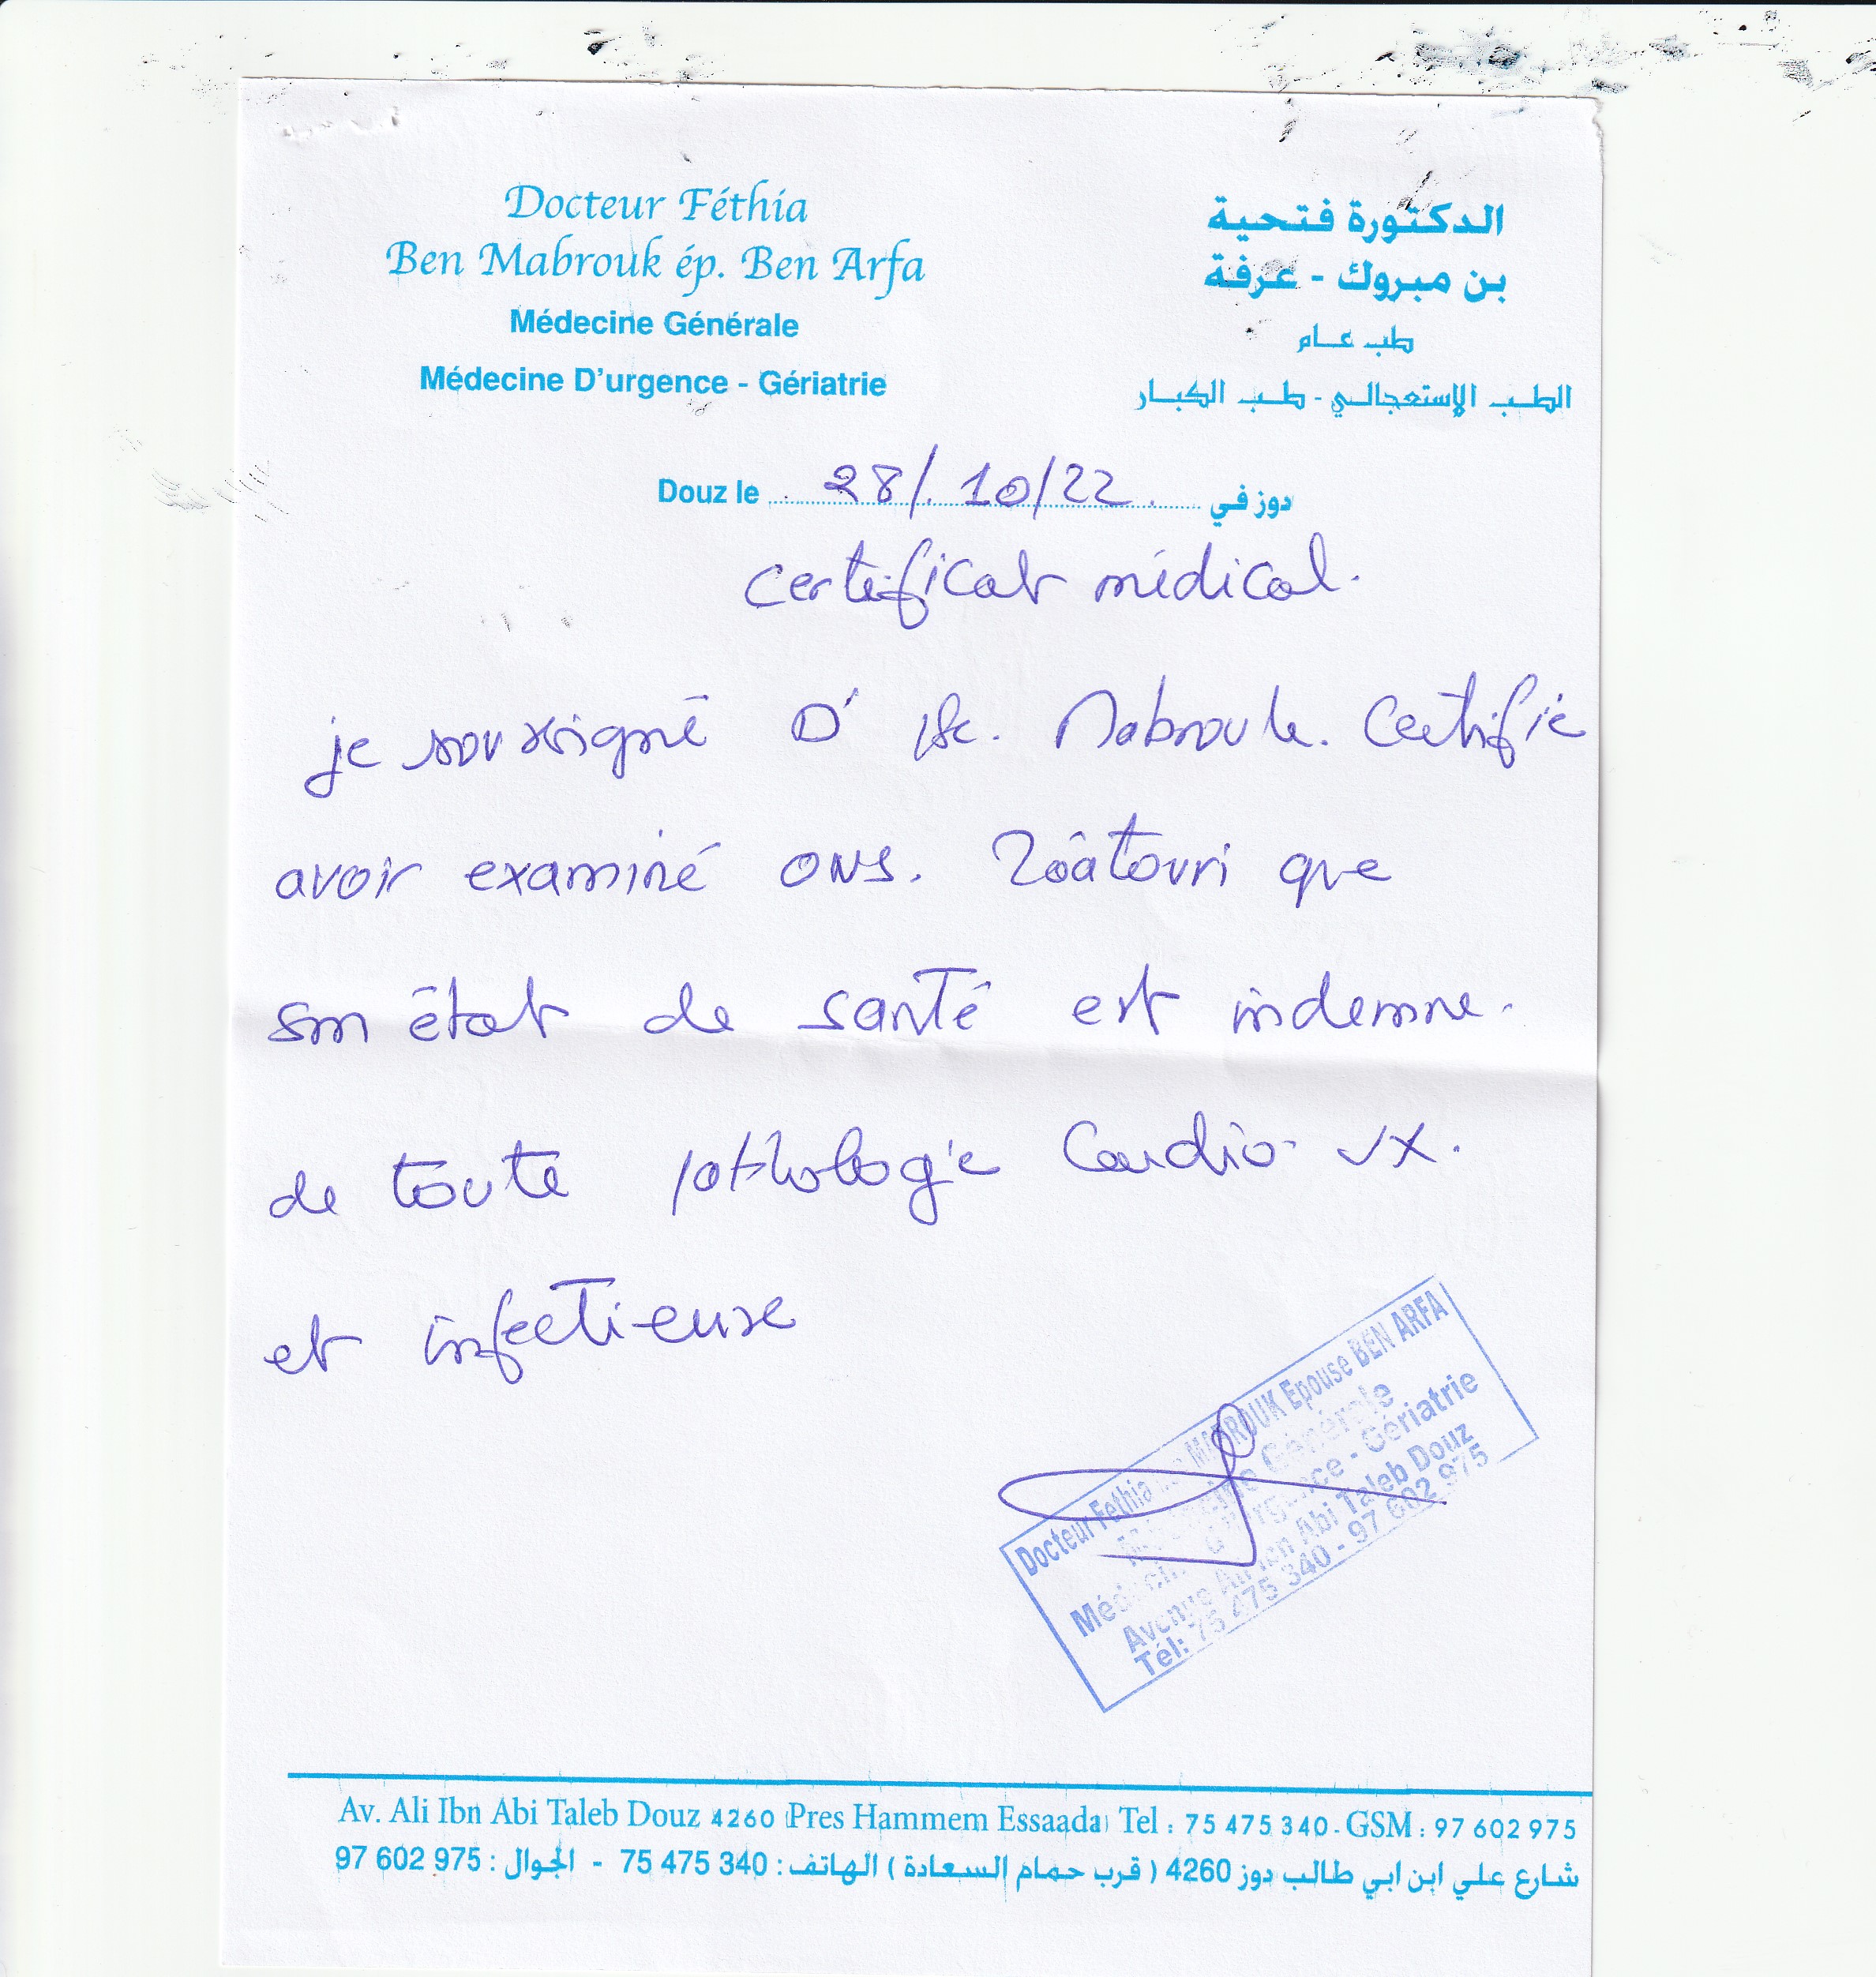 Docteur Féthia
Ben Mabrouk ép. Ben Arfa
Médecine Générale
Médecine D'urgence - Gériatrie
الدكتورة فتحية
بن مبروك - عرفة
طب عام
الطب الإستعجالي - طب الكبار
Douz le 28/10/22 دوز في
certificat médical.
je soussigné Dr Mabrouk. Certifie
avoir examiné ONS. Zâatouri que
son état de santé est indemne.
de toute pathologie Cardio-vx.
et infectieuse
Docteur Fethia MABROUK Epouse BEN ARFA
Médecine Générale
Médecine d'urgence - Gériatrie
Avenue Ali Ibn Abi Taleb Douz
Tél: 75 475 340 - 97 602 975
Av. Ali Ibn Abi Taleb Douz 4260 (Pres Hammem Essaada) Tel : 75 475 340 - GSM : 97 602 975
شارع علي ابن ابي طالب دوز 4260 ( قرب حمام السعادة ) الهاتف : 340 475 75 - الجوال : 975 602 97